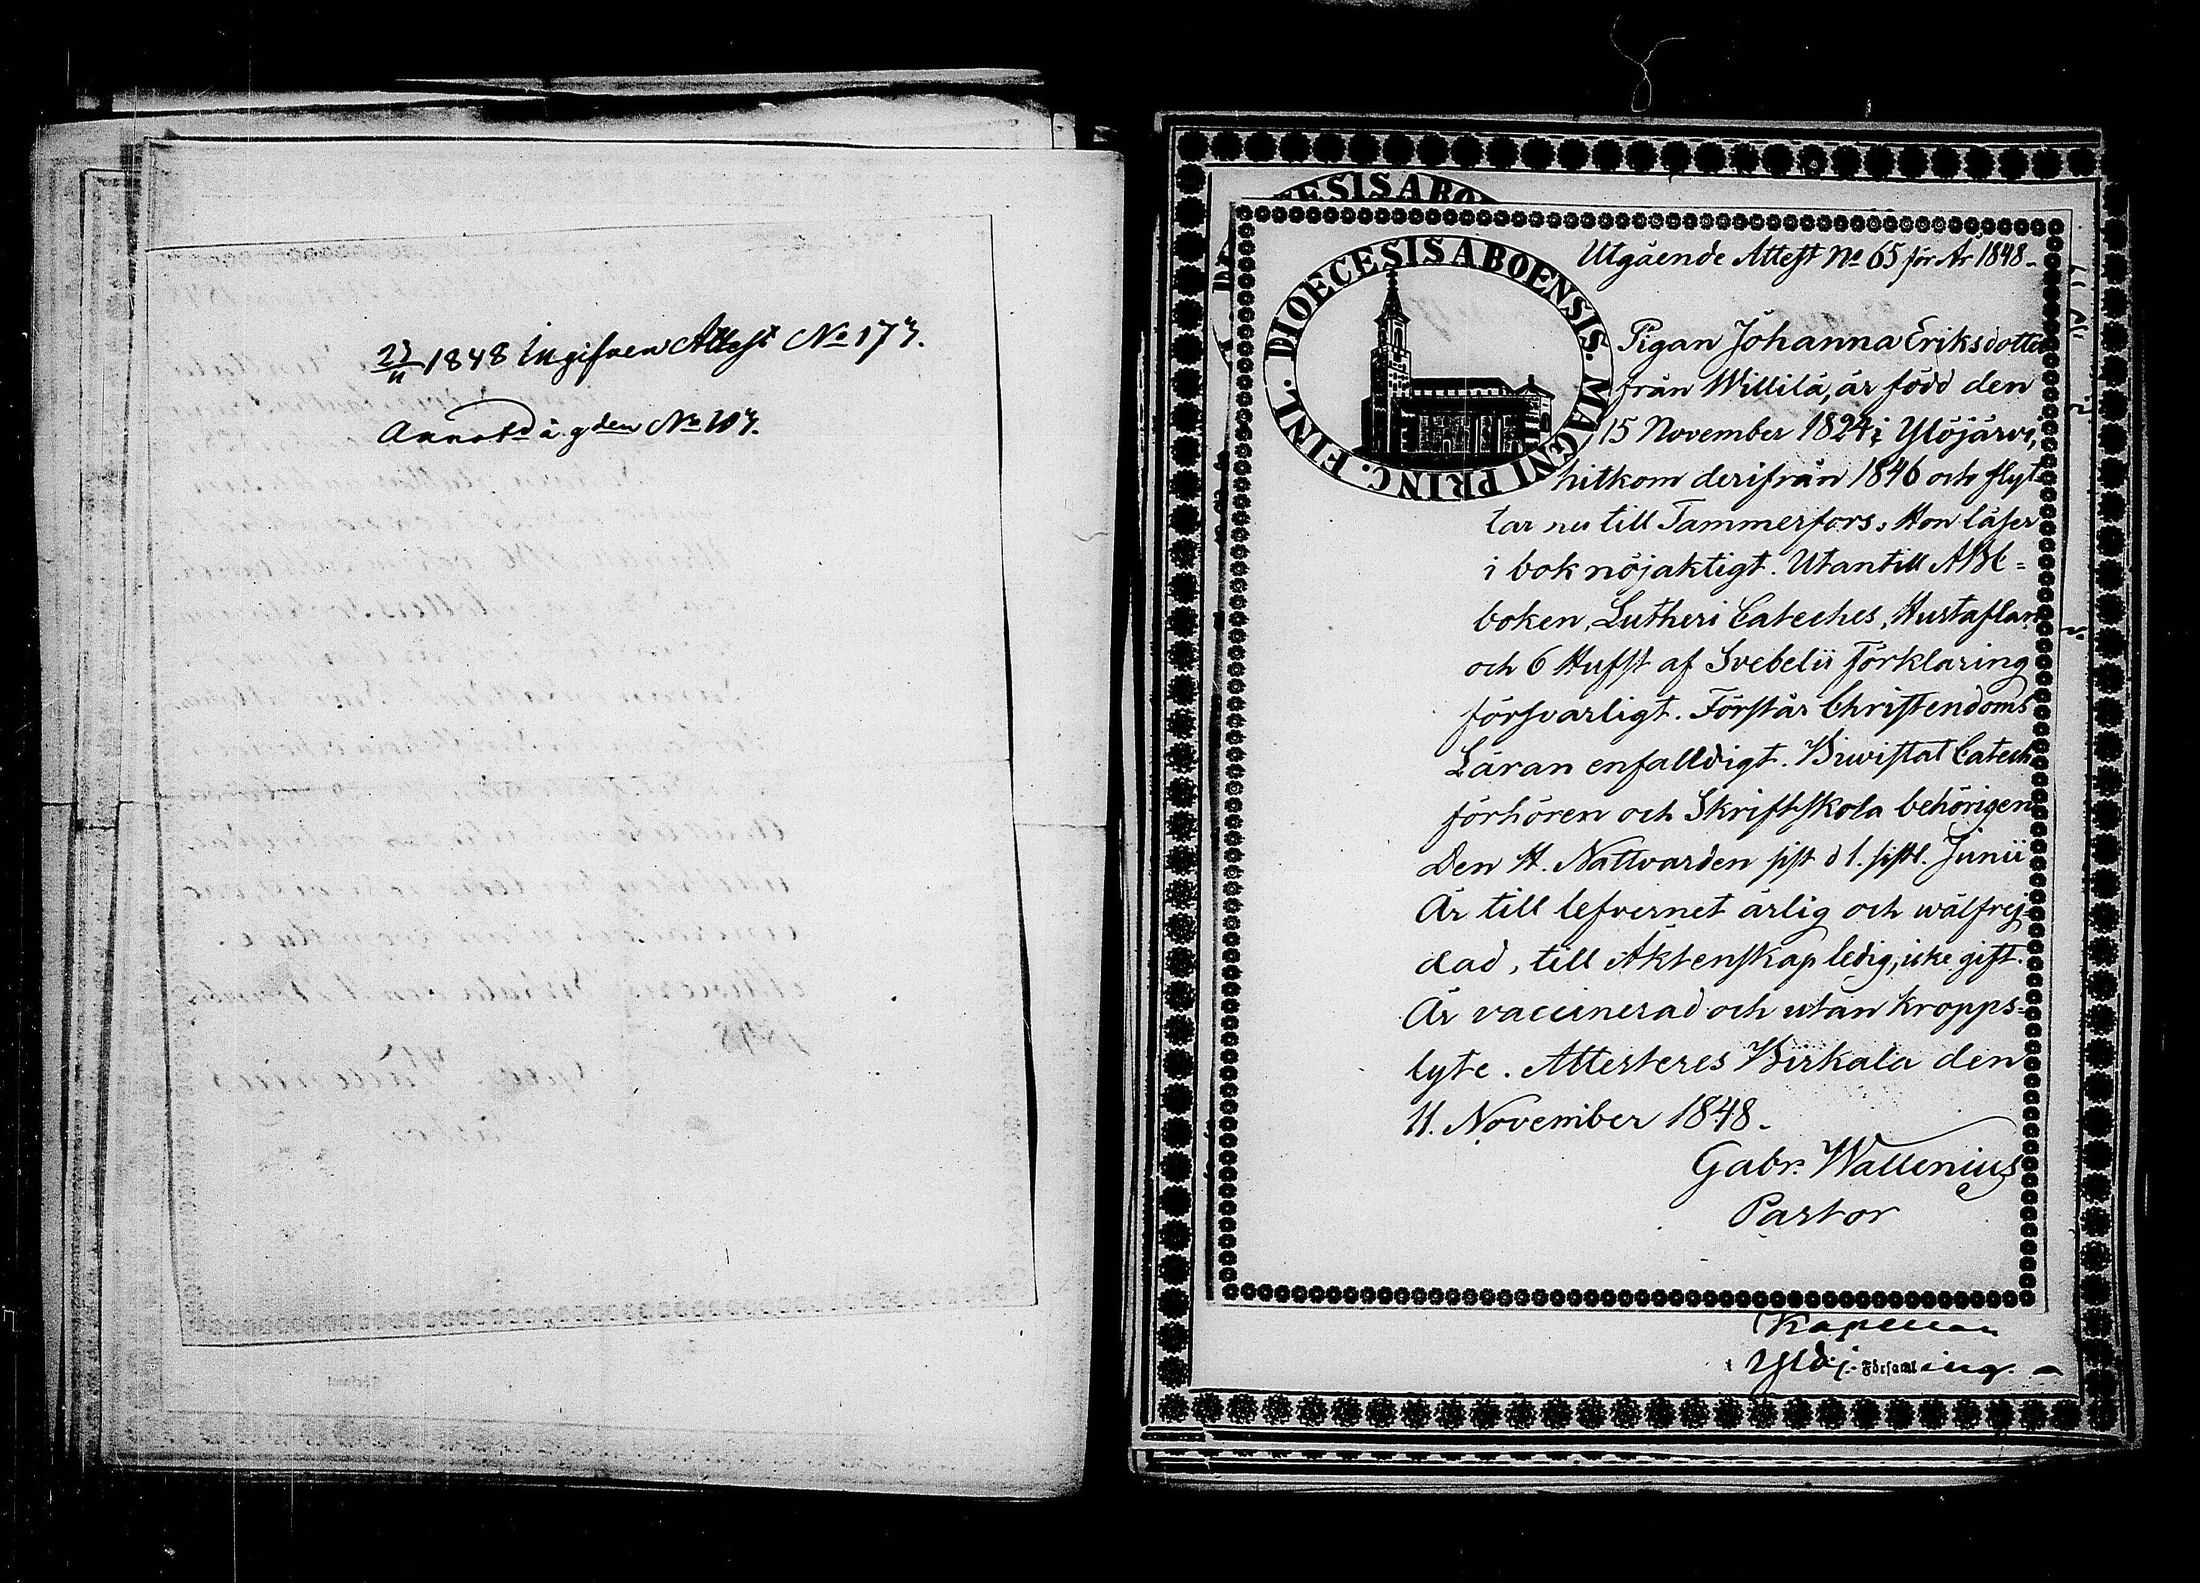 23/11 1848 Ingifven Attest No 173.
Annotd å gden No 107.
DIOECESIS ABOENSIS. MAGNI PRINC. FINL.
Utgående Attest No 65 för År 1848.
Pigan Johanna Eriksdotter
från Willilä, är född den
15 November 1824 i Ylöjärvi,
hitkom derifrån 1846 och flyt
tar nu till Tammerfors. Hon läser
i bok nöjaktigt. Utantill ABC=
boken, Lutheri Cateches, Hustaflan
och 6 Hufst af Svebelii förklaring
försvarligt. Förstår Christendoms
Läran enfalldigt. Biwistat Catech
förhören och Skriftskola behörigen
Den H. Nattvarden sist d 1. sistl. Junii
Är till lefvernet ärlig och wälfrej=
dad, till Äktenskap ledig, icke gift.
Är vaccinerad och utan kropps=
lyte. Attesteres Birkala den
11. November 1848.
Gabr. Wallenius
Pastor
Kapellan
Ylöj. Församling.